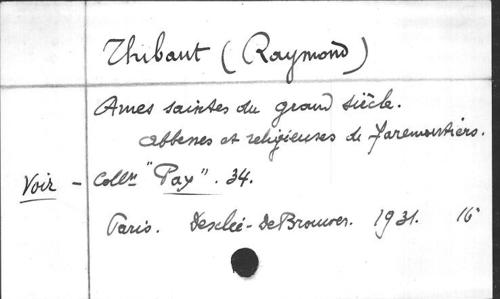 Thibaut (Raymond)
Ames saintes du grand siècle.
Abbesses et religieuses de Faremoutiers.
Voir - Collon "Pax". 34.
Paris. Desclée-DeBrouwer. 1931. 16°